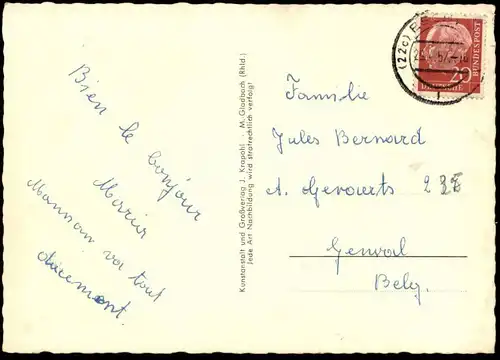 Bien le bonjour
Maria
Maman va tout
doucement
Kunstanstalt und Großverlag J. Krapohl - M. Gladbach (Rhld.)
Jede Art Nachbildung wird strafrechtlich verfolgt
(22c)
20
DEUTSCHE
BUNDESPOST
Familie
Jules Bernard
A. Gevaerts
Genval
Belg.